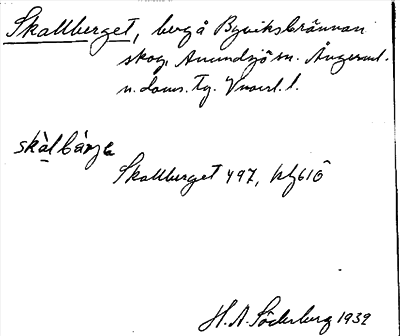 Skallberget, berg å Byviksbrännan
skog, Anundsjö sn. Ångerml.
n. doms. Tg. Vnorrl. l.
skàlbárjə
Skallberget 497, hbf610
H. A. Söderberg 1932